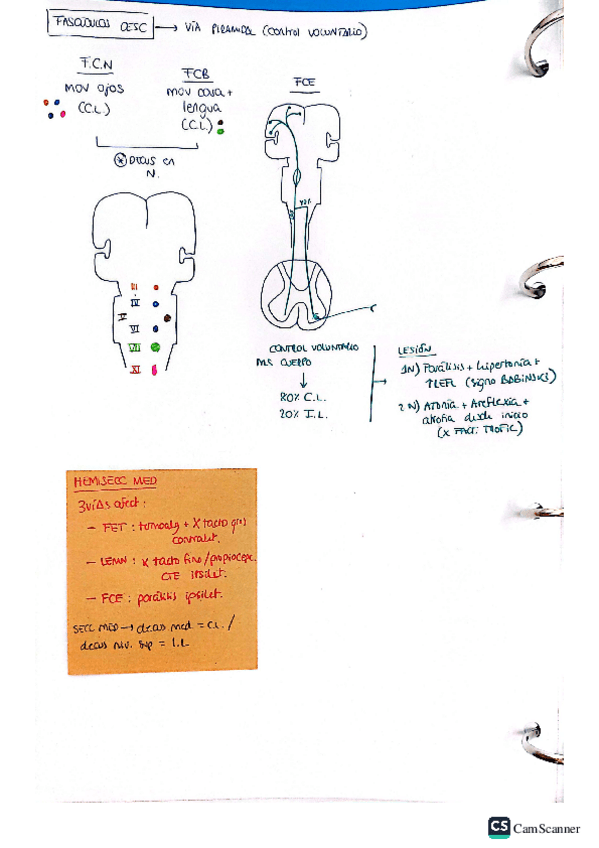 FASCÍCULOS DESC → VÍA PIRAMIDAL (CONTROL VOLUNTARIO)
F.C.N
mov ojos
(C.L)
FCB
mov cara +
lengua
(C.L)
FCE
* Decus en
N.
III
IV
V
VI
VII
XI
CONTROL VOLUNTARIO
ML CUERPO
↓
80% C.L.
20% I.L.
LESIÓN
1N) Parálisis + hipertonía +
↑REFL (signo BABINSKI)
2N) Atonía + Areflexia +
atrofia desde inicio
(X FACT. TROFIC)
HEMISECC MED
3 vías afect:
- FET: tumoalg + X tacto gros
contralat.
- LEMN: X tacto fino/propiocepc.
CTE ipsilat.
- FCE: parálisis ipsilat.
SECC MED → decus med = C.L. /
decus niv. sup = I.L
CS CamScanner